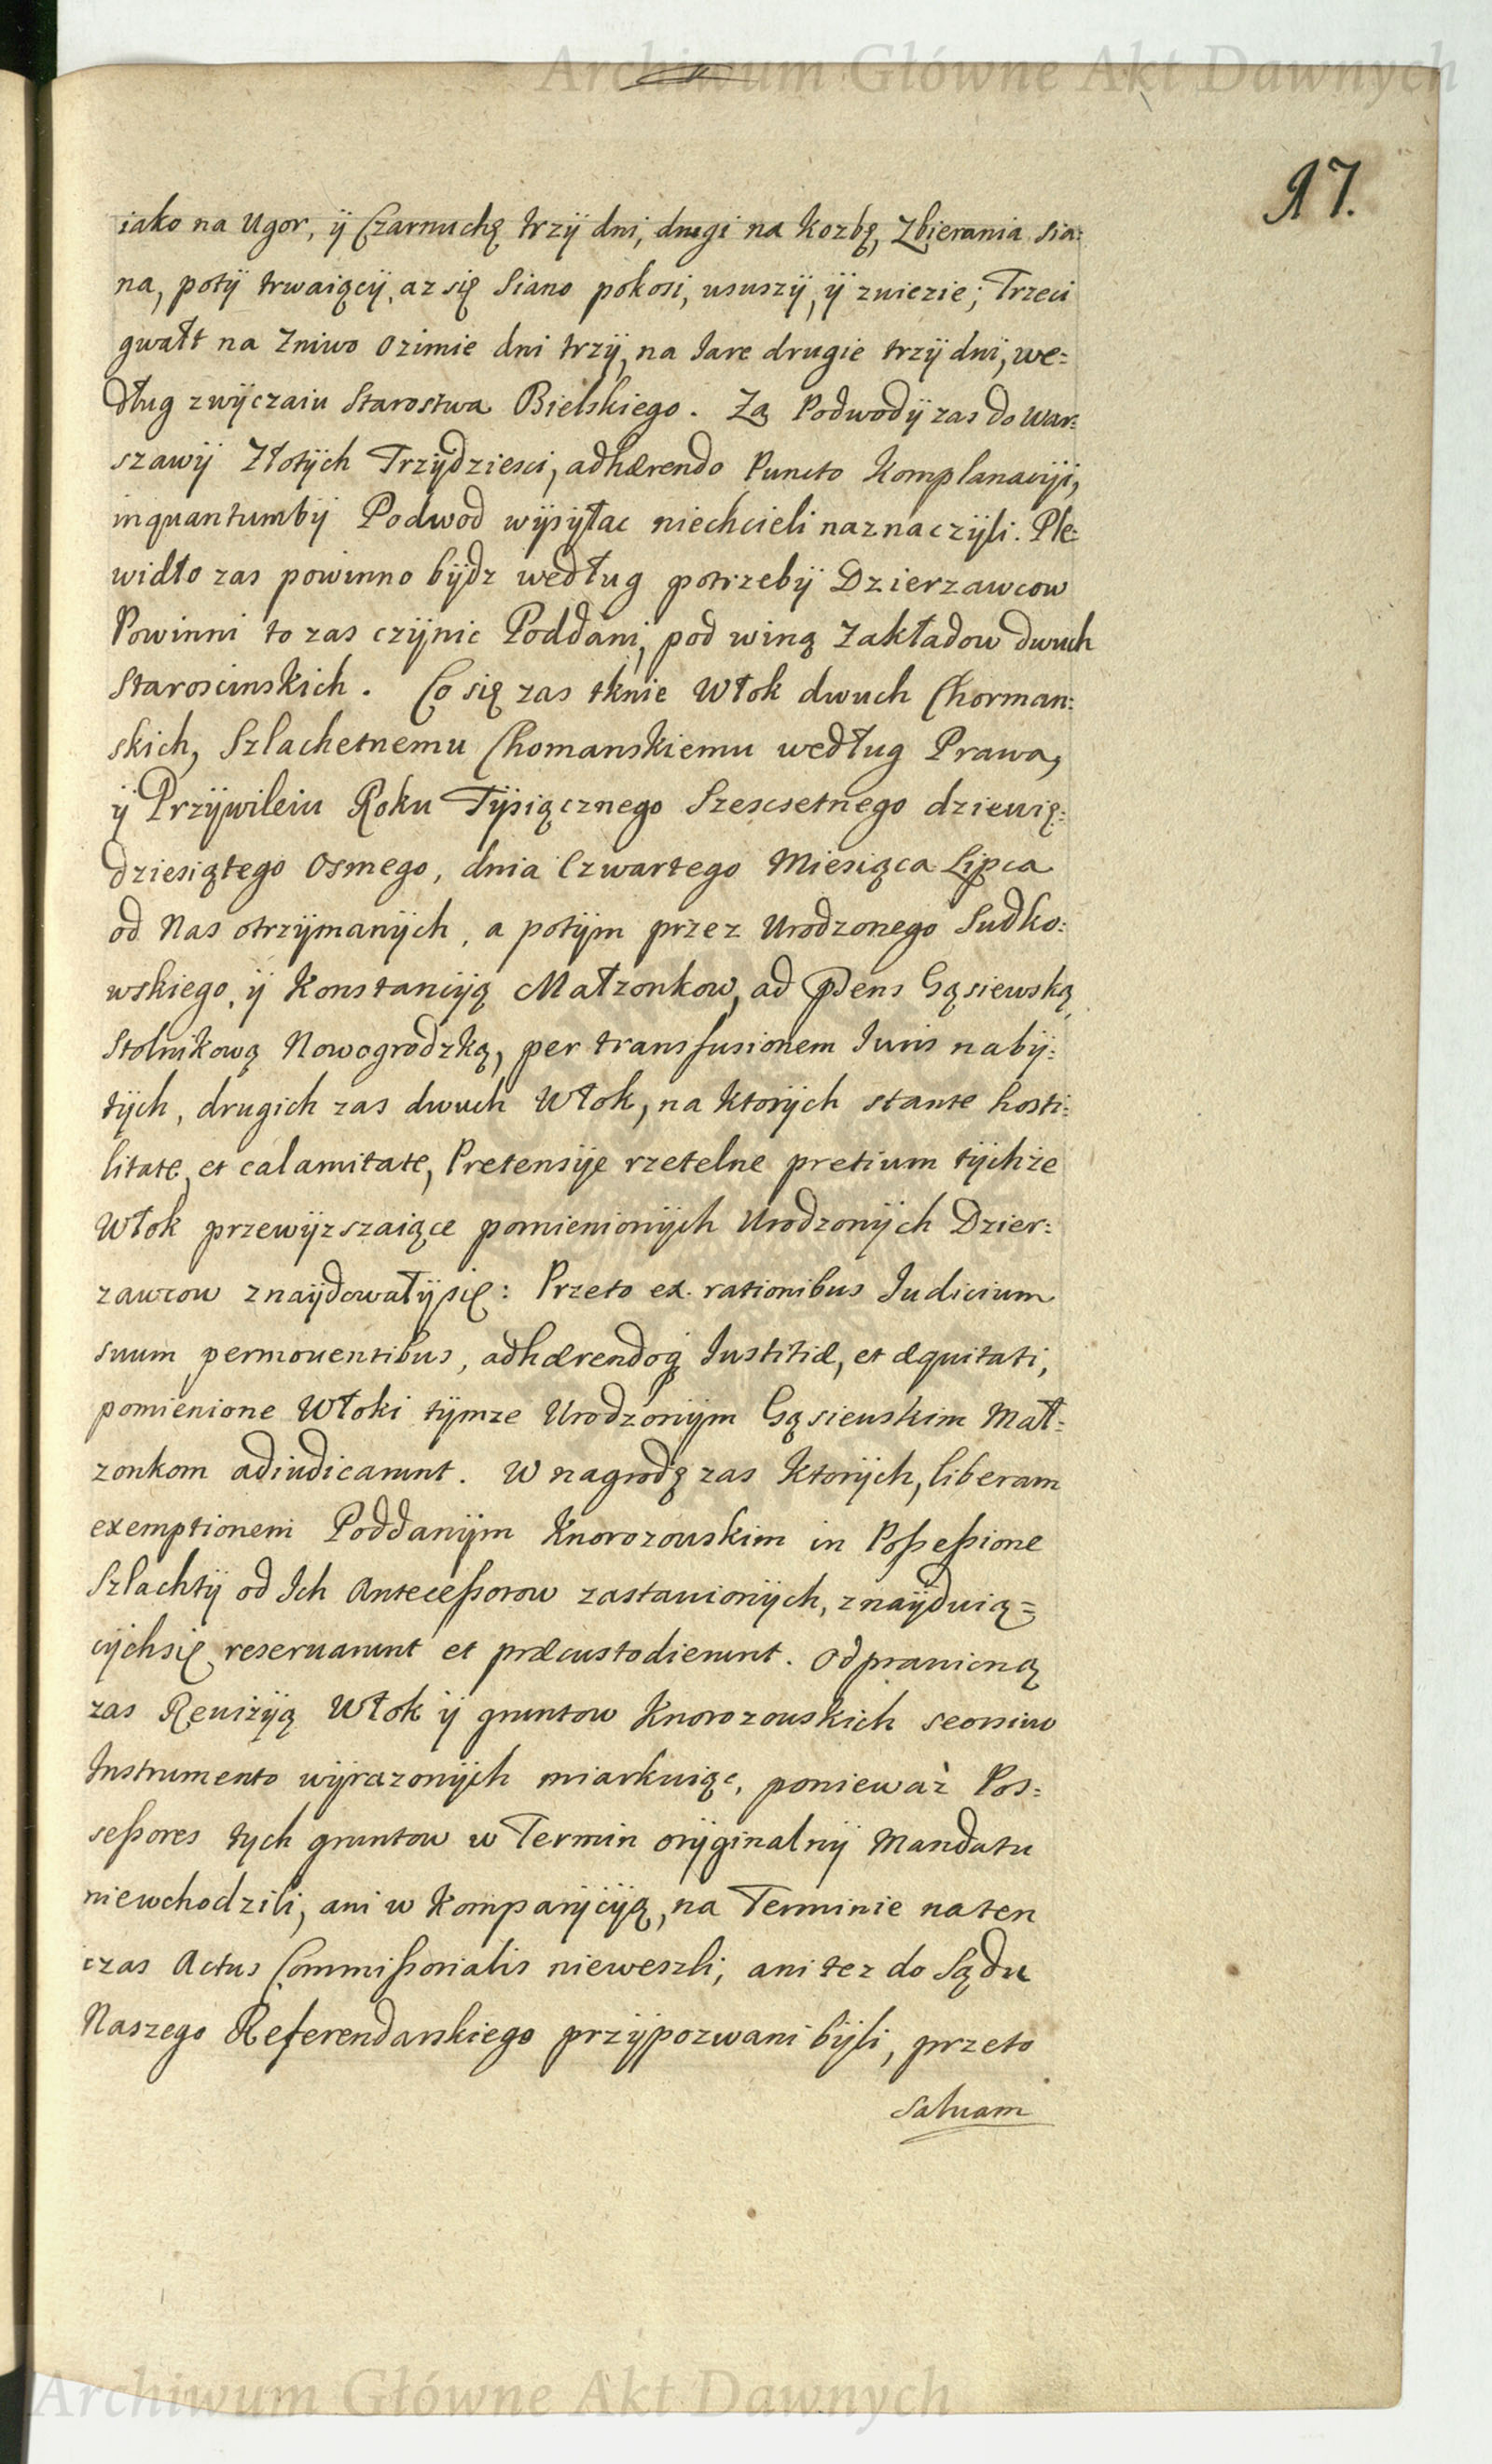 Archiwum Główne Akt Dawnych
97.
iako na Ugor, ÿ Czarnuchę trzÿ dni, drugi na Kozbę, Zbierania sia:
na, potÿ trwaiącÿ, az się Siano pokosi, ususzÿ, ÿ zwiezie; Trzeci
gwałt na Zniwo Ozimie dni trzÿ, na Iare drugie trzÿ dni, we=
dług zwÿczaiu Starostwa Bielskiego. Zą Podwodÿ zas do War:
szawÿ Złotÿch Trzÿdziesci, adhærendo Puncto Komplanacÿi,
inquantumbÿ Podwod wÿsÿłac niechcieli naznaczÿli. Ple:
widło zas powinno bÿdz według potrzebÿ Dzierzawcow
Powinni to zas czÿnic Poddani, pod winą Zakładow dwuch
Staroscinskich. Co się zas tknie Włok dwuch Chorman:
skich, Szlachetnemu Chomanskiemu według Prawa,
ÿ Przÿwileiu Roku Tÿsiącznego Szescsetnego dziewię:
dziesiątego Osmego, dnia Czwartego Miesiąca Lipca
od Nas otrzÿmanÿch, a potÿm przez Urodzonego Sudko:
wskiego, ÿ Konstancÿą Małzonkow, ad Gąsiewską
Stolnikową Nowogrodzką, per transfusionem Iuris nabÿ:
tÿch, drugich zas dwuch Włok, na Ktorÿch stante hosti:
litate, et calamitate, Pretensÿe rzetelne pretium tÿchże
Włok przewÿzszaiące pomienionÿch Urodzonÿch Dzier:
zawcow znaÿdowałÿsię: Przeto ex rationibus Iudicium
suum permouentibus, adhærendoq́ Iustitiæ, et æquitati,
pomienione Włoki tÿmze Urodzonÿm Gąsieuskim Mał:
zonkom adiudicarunt. W nagrodę zas Ktorÿch, liberam
exemptionem Poddanÿm Knorozouskim in Poßeßione
Szlachtÿ od Ich Anteceßorow zastauionÿch, znaÿduią=
cÿchsię reseruarunt et præcustodierunt. Odprawioną
zas Reuizÿą Włok ÿ gruntow Knorozouskich seorsiuo
Instrumento wÿrazonÿch miarkuiąc, ponieważ Pos:
seßores tych gruntow w Termin orÿginalnÿ Mandatu
niewchodzili, ani w Kompanÿcÿą, na Terminie naten
czas Actus Commißorialis nieweszli, ani tez do Sądu
Naszego Referendarskiego przÿpozwani bÿli, przeto
saluam
Archiwum Główne Akt Dawnych